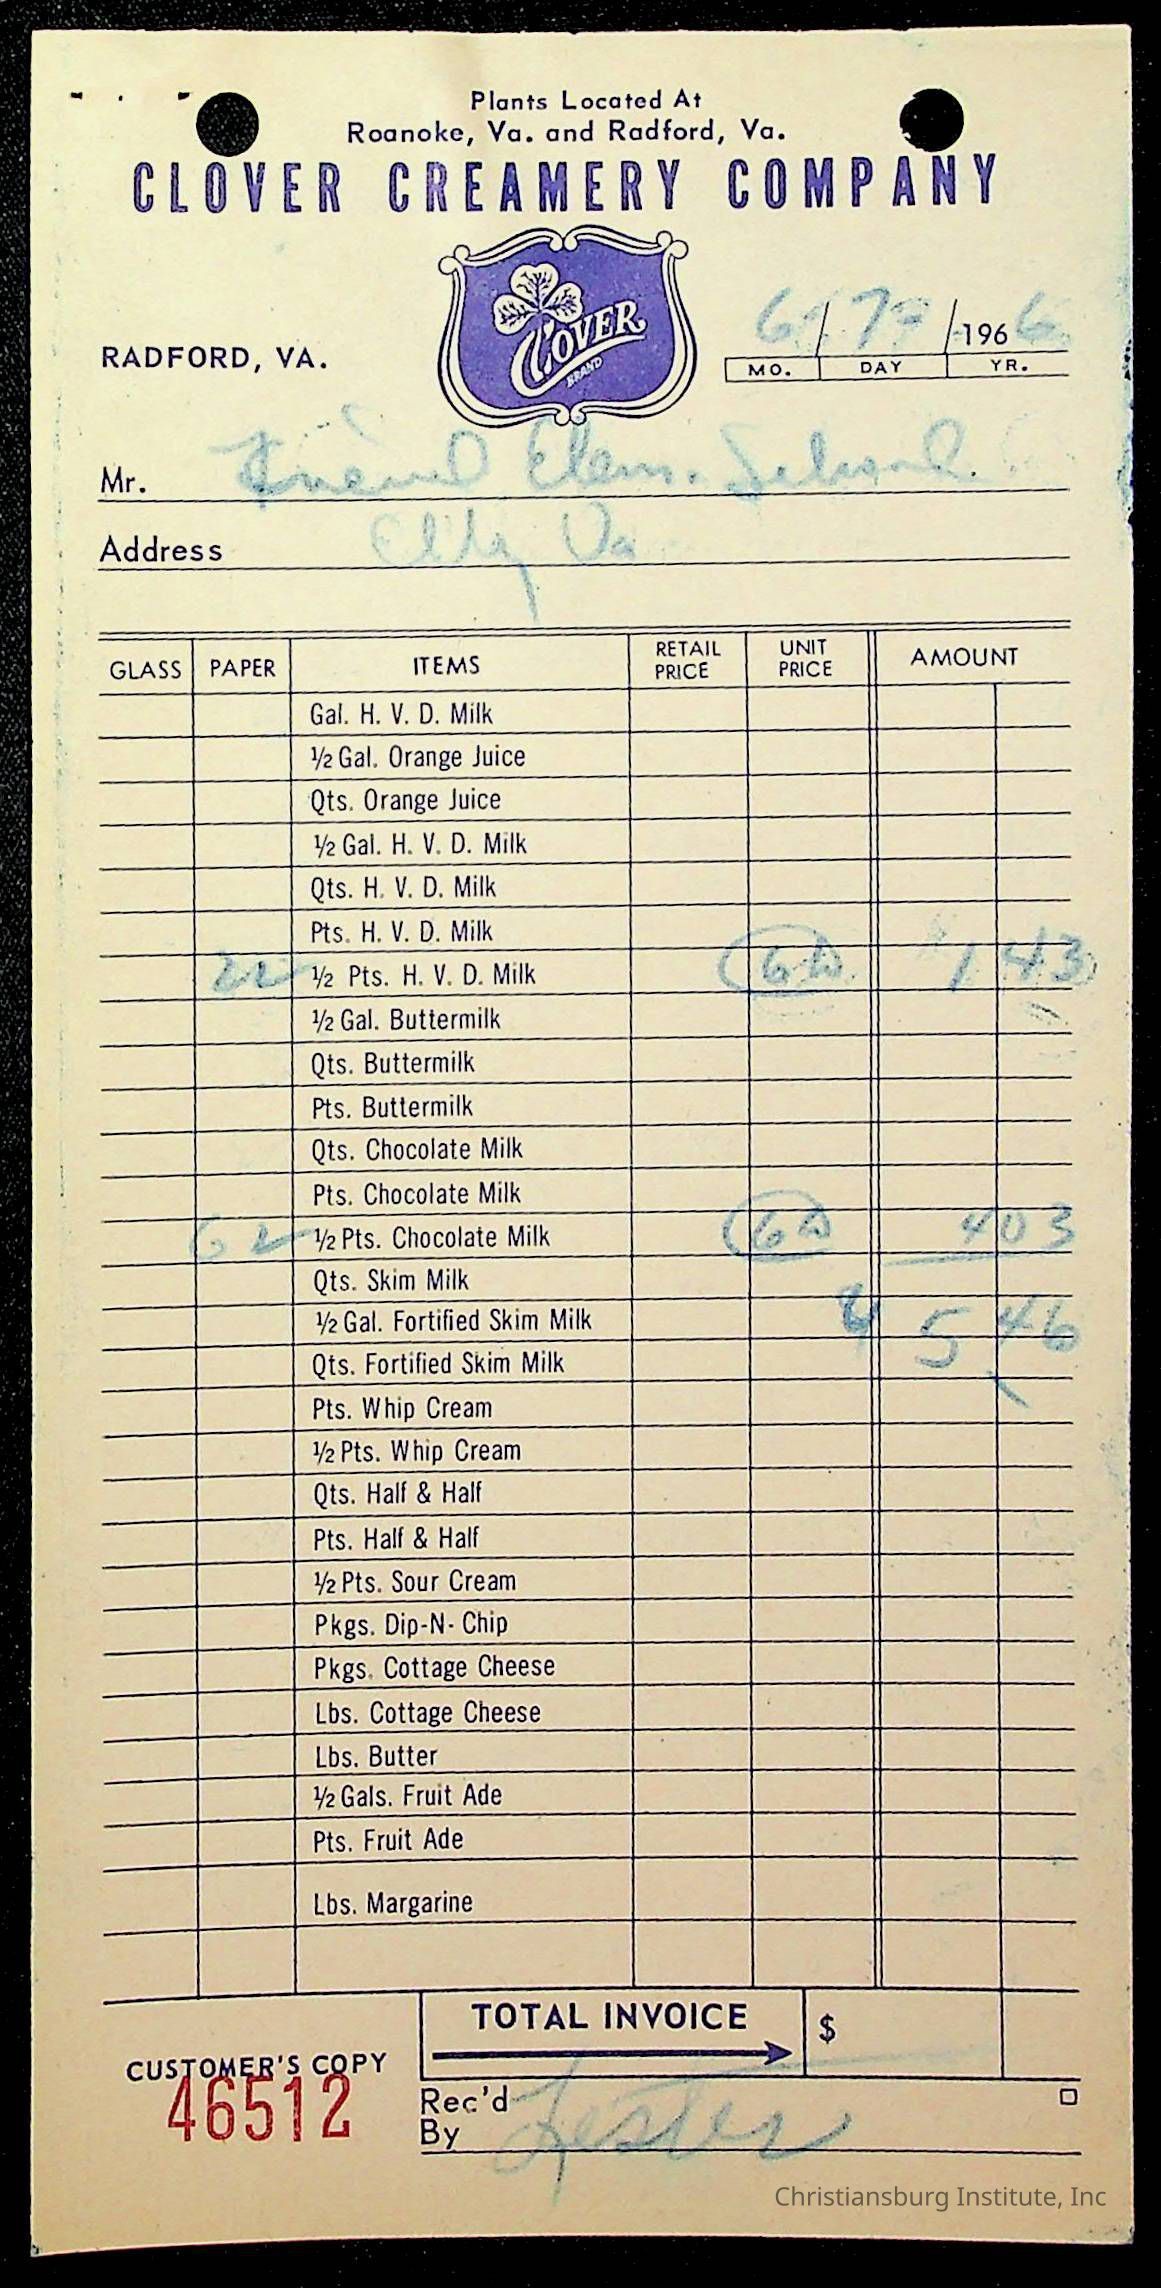 Plants Located At
Roanoke, Va. and Radford, Va.
CLOVER CREAMERY COMPANY
CLOVER
BRAND
RADFORD, VA.
6 / 7 / 1966
MO. DAY YR.
Mr. Friend Elem. School.
Address Va
GLASS PAPER ITEMS RETAIL PRICE UNIT PRICE AMOUNT
Gal. H. V. D. Milk
½ Gal. Orange Juice
Qts. Orange Juice
½ Gal. H. V. D. Milk
Qts. H. V. D. Milk
Pts. H. V. D. Milk
22 ½ Pts. H. V. D. Milk 6½ 1 43
½ Gal. Buttermilk
Qts. Buttermilk
Pts. Buttermilk
Qts. Chocolate Milk
Pts. Chocolate Milk
62 ½ Pts. Chocolate Milk 6½ 4 03
Qts. Skim Milk
½ Gal. Fortified Skim Milk 5 46
Qts. Fortified Skim Milk
Pts. Whip Cream
½ Pts. Whip Cream
Qts. Half & Half
Pts. Half & Half
½ Pts. Sour Cream
Pkgs. Dip-N-Chip
Pkgs. Cottage Cheese
Lbs. Cottage Cheese
Lbs. Butter
½ Gals. Fruit Ade
Pts. Fruit Ade
Lbs. Margarine
TOTAL INVOICE $
CUSTOMER'S COPY
46512
Rec'd By Lester
Christiansburg Institute, Inc